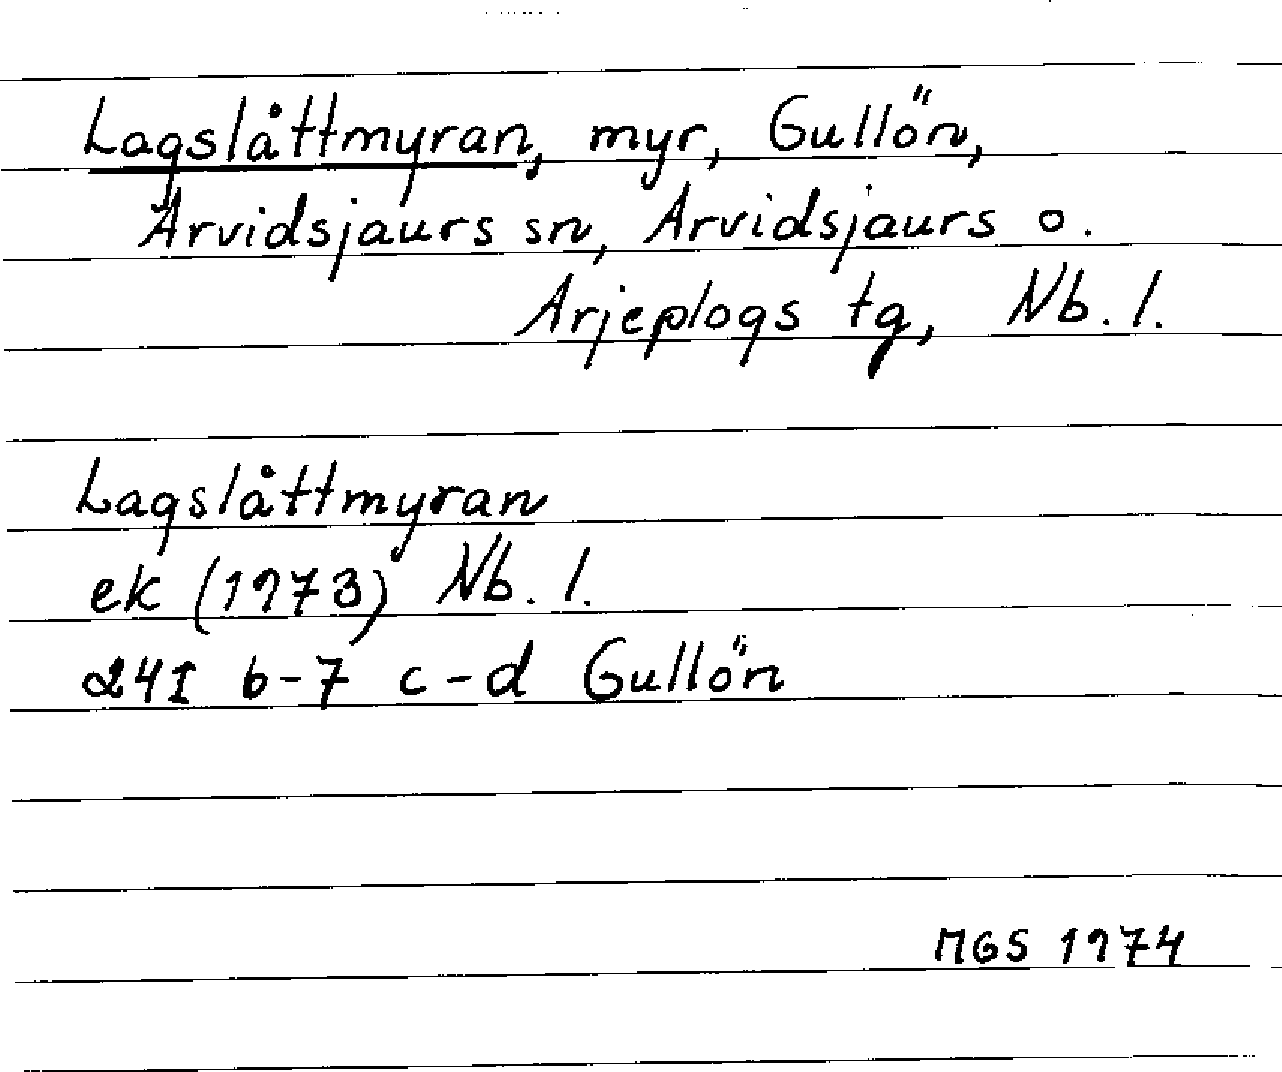 Lagslåttmyran, myr, Gullön,
Arvidsjaurs sn, Arvidsjaurs o.
Arjeplogs tg, Nb. l.
Lagslåttmyran
ek (1973) Nb. l.
24I b-7 c-d Gullön
MGS 1974